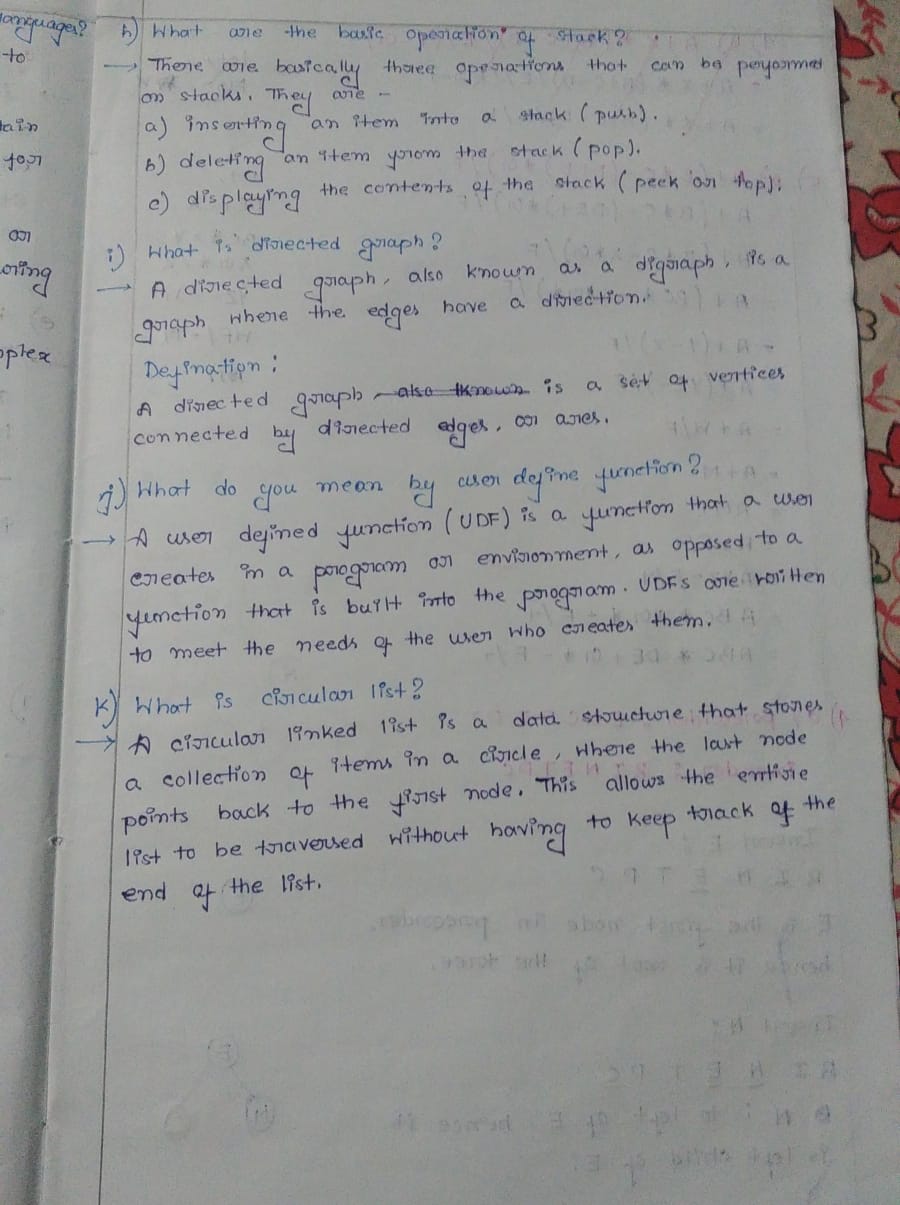 languages?
to
tain
for
or
oring
mplex
h) What are the basic operation of stack?
→ There are basically three operations that can be performed
on stacks. They are –
a) inserting an item into a stack (push).
b) deleting an item from the stack (pop).
c) displaying the contents of the stack (peek or top).
i) What is directed graph?
→ A directed graph, also known as a digraph, is a
graph where the edges have a direction.
Defination:
A directed graph also known is a set of vertices
connected by directed edges, or arcs.
j) What do you mean by user define function?
→ A user defined function (UDF) is a function that a user
creates in a program or environment, as opposed to a
function that is built into the program. UDFs are written
to meet the needs of the user who creates them.
k) What is circular list?
→ A circular linked list is a data structure that stores
a collection of items in a circle, where the last node
points back to the first node. This allows the entire
list to be traversed without having to keep track of the
end of the list.